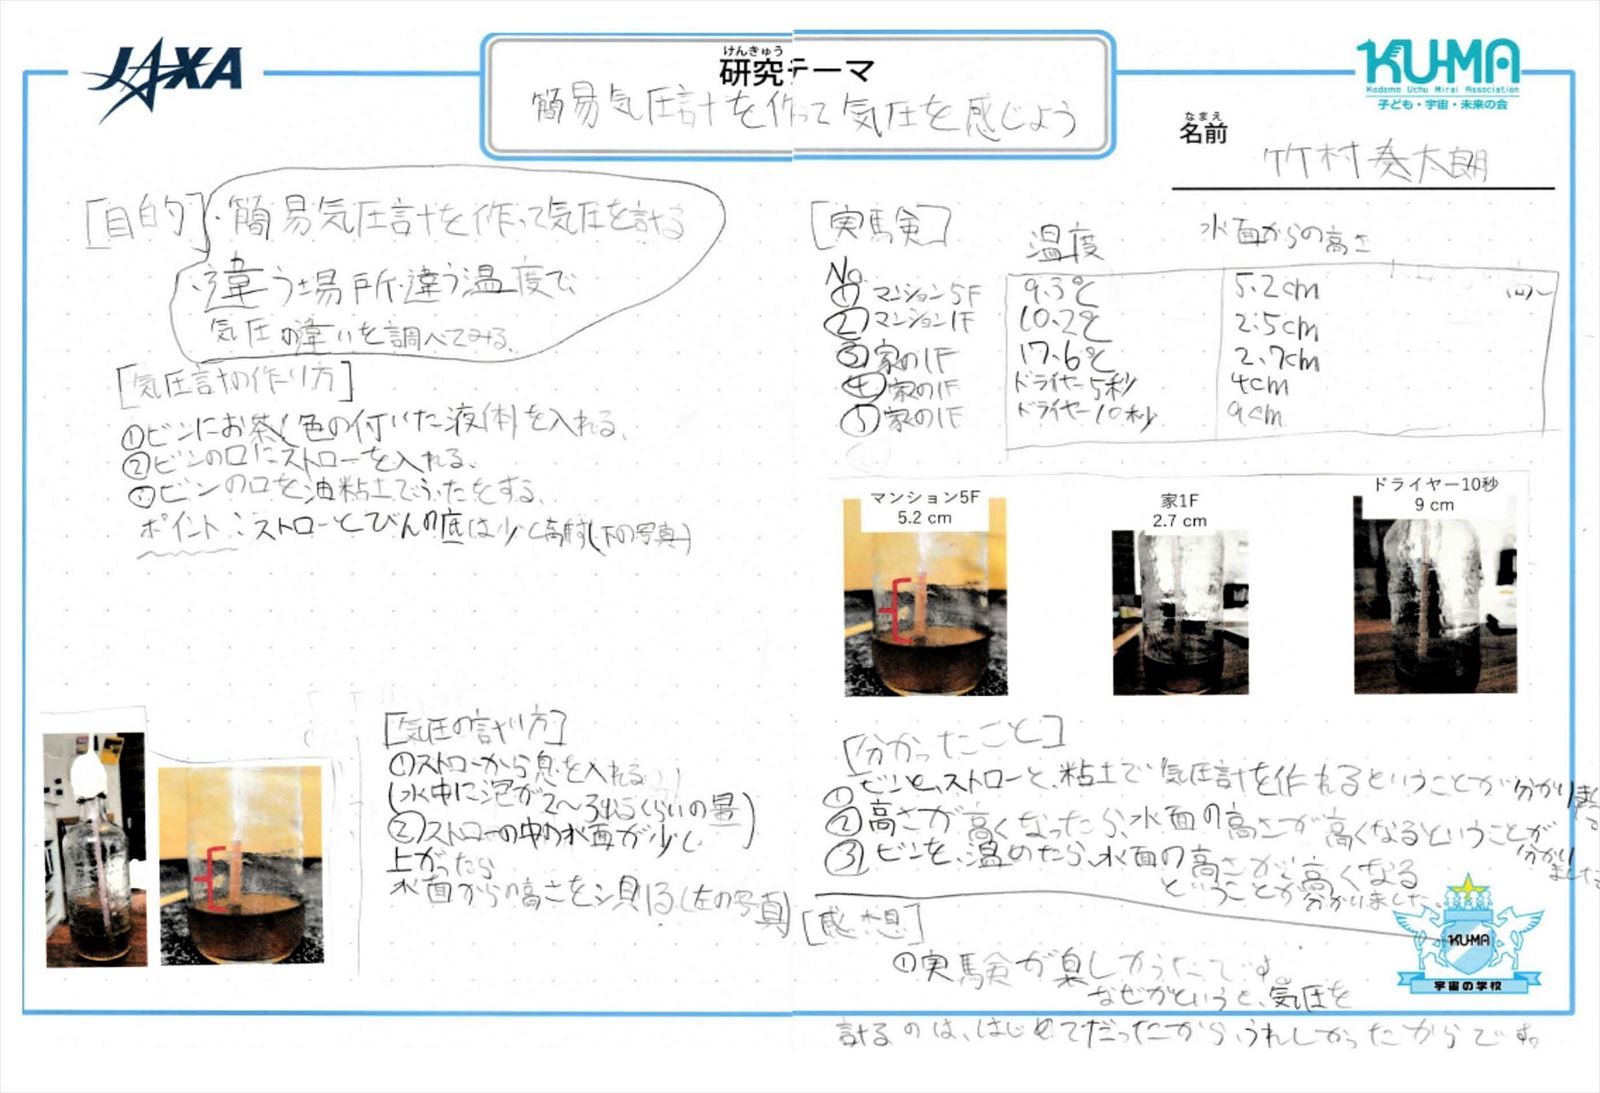 JAXA
けんきゅう
研究テーマ
簡易気圧計を作って気圧を感じよう
KU-MA
Kodomo Uchu Mirai Association
子ども・宇宙・未来の会
なまえ
名前
竹村奏太朗
[目的]・簡易気圧計を作って気圧を計る
・違う場所・違う温度で、
気圧の違いを調べてみる。
[気圧計の作り方]
①ビンにお茶(色の付いた液体)を入れる。
②ビンの口にストローを入れる。
③ビンの口を油粘土でふたをする。
ポイント:ストローとびんの底は少し離す(下の写真)
[気圧の計り方]
①ストローから息を入れる
(水中に泡が2〜3粒くらいの量)
②ストローの中の水面が少し
上がったら
水面からの高さを測る(左の写真)
[実験]
温度 水面からの高さ
No.
①マンション5F 9.3℃ 5.2cm
②マンション1F 10.2℃ 2.5cm
③家の1F 17.6℃ 2.7cm
④家の1F ドライヤー5秒 4cm
⑤家の1F ドライヤー10秒 9cm
マンション5F
5.2 cm
家1F
2.7 cm
ドライヤー10秒
9 cm
[分かったこと]
①ビンと、ストローと、粘土で気圧計を作れるということが分かりました
②高さが高くなったら、水面の高さが高くなるということが分かりました
③ビンを、温めたら、水面の高さが高くなる
ということが分かりました。
[感想]
①実験が楽しかったです。
なぜかというと、気圧を
計るのは、はじめてだったから、うれしかったからです。
KU-MA
宇宙の学校